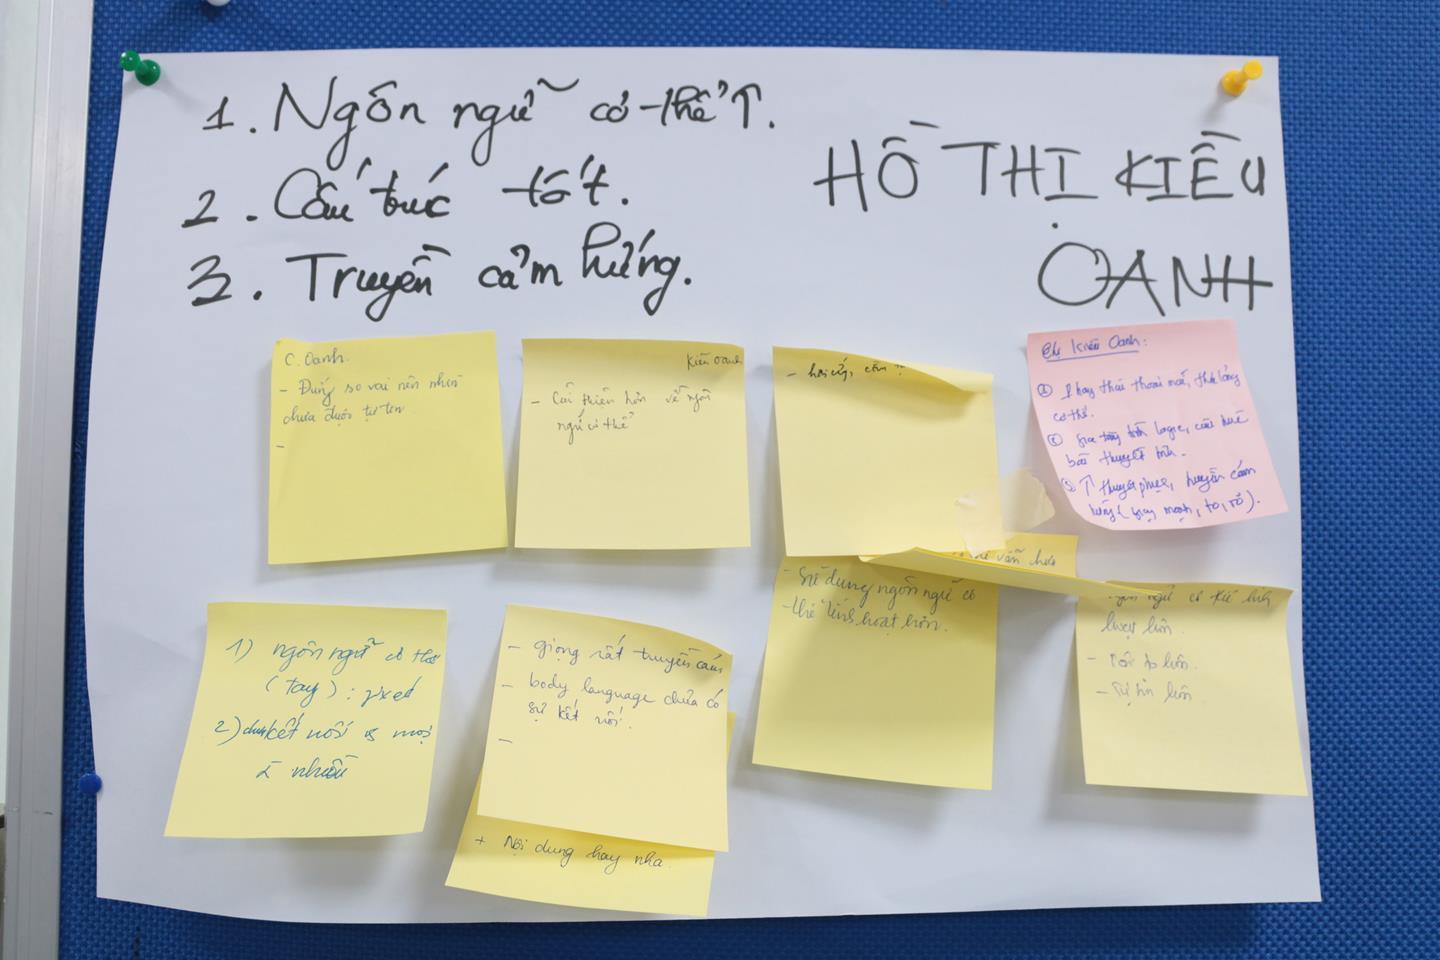 1. Ngôn ngữ cơ thể ↑.
2. Cấu trúc tốt.
3. Truyền cảm hứng.
HỒ THỊ KIỀU
OANH
C. Oanh.
- Đứng so vai nên nhìn
chưa được tự tin
-
Kiều Oanh
- Cải thiện hơn về ngôn
ngữ cơ thể
Chị Kiều Oanh:
① Phong thái thoải mái, thả lỏng
cơ thể.
② Gia tăng tính logic, cấu trúc
bài thuyết trình.
③ ↑ thuyết phục, truyền cảm
hứng (mạnh, to, rõ).
1) ngôn ngữ cơ thể
(tay):
2) chưa kết nối vs mọi
nhiều
- giọng rất truyền cảm
- body language chưa có
sự kết nối.
-
+ Nội dung hay nha
vẫn chưa
- Sử dụng ngôn ngữ cơ
thể linh hoạt hơn.
ngôn ngữ cơ thể linh
hoạt hơn.
- Nói to hơn.
- Tự tin hơn